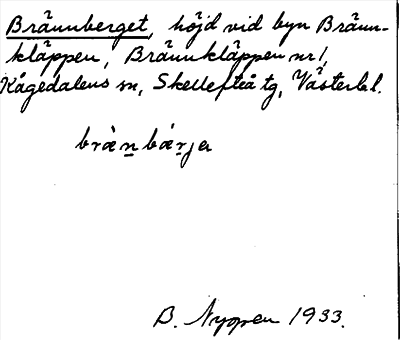 Brännberget, höjd vid byn Bränn-
kläppen, Brännkläppen nr 1,
Kågedalens sn, Skellefteå tg, Västerb l.
brä̀n̲bär̲ja
B. Nyman 1933.